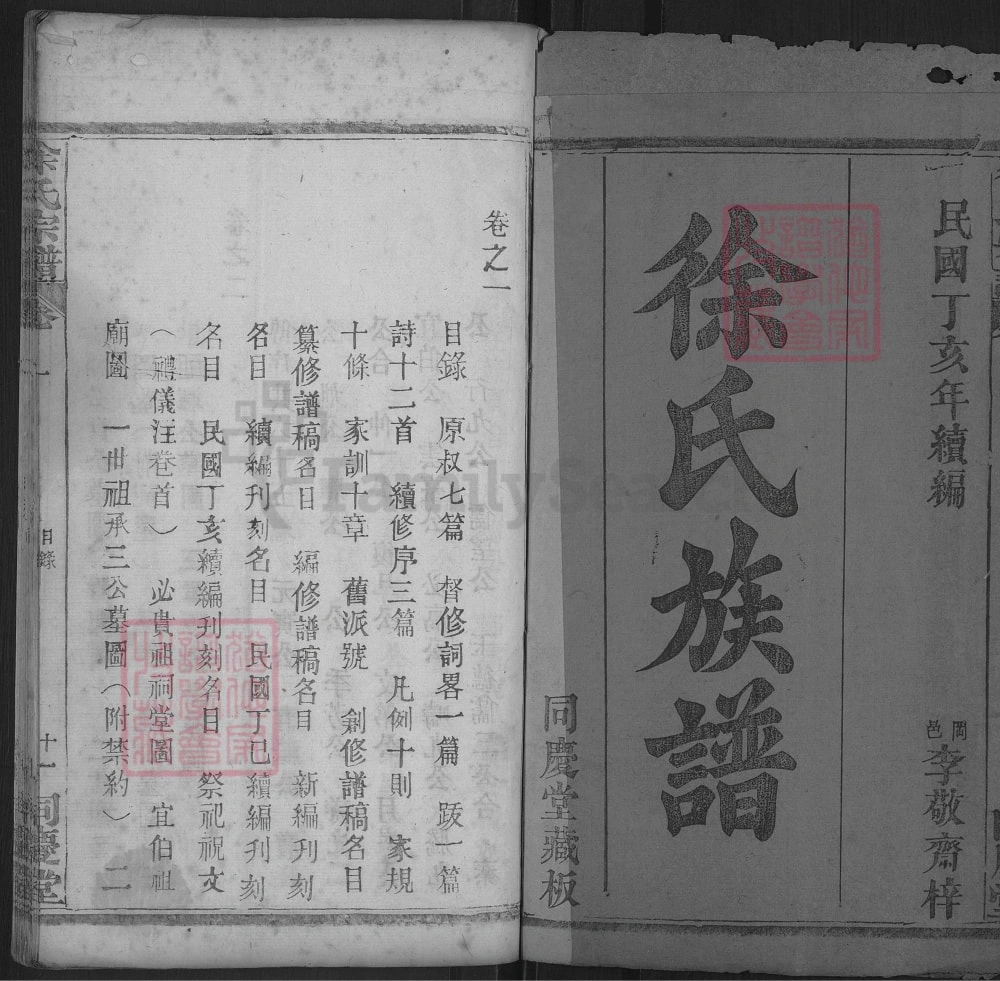 民國丁亥年續編
岡邑李敬齋梓
徐氏族譜
同慶堂藏板
卷之一
目錄　原叔七篇　督修詞畧一篇　跋一篇
詩十二首　續修序三篇　凡例十則　家規
十條　家訓十章　舊派號　創修譜稿名目
纂修譜稿名目　編修譜稿名目　新編刊刻
名目　續編刊刻名目　民國丁巳續編刊刻
名目　民國丁亥續編刊刻名目　祭祀祝文
（禮儀注卷首）　必貴祖祠堂圖　宜伯祖
廟圖　一卅祖承三公墓圖（附禁約）　二
徐氏宗譜　卷一　目錄　十一　同慶堂
FamilySearch